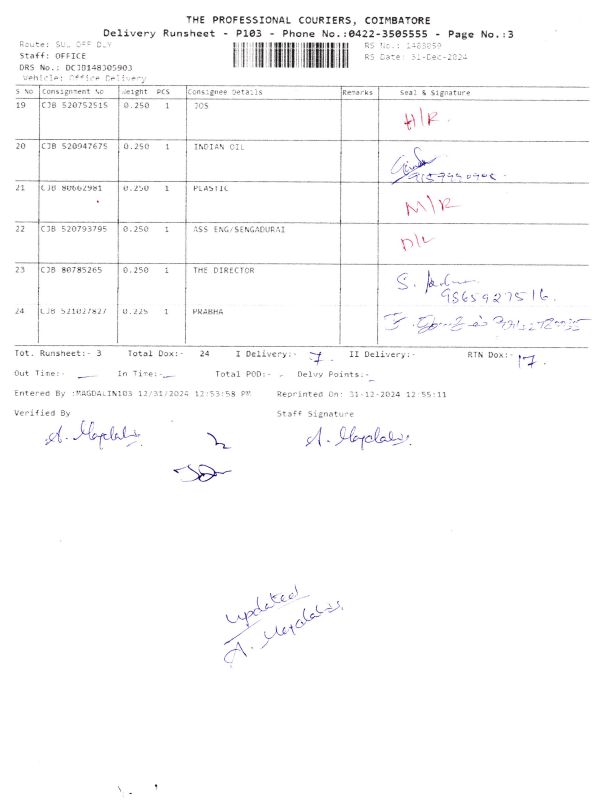 THE PROFESSIONAL COURIERS, COIMBATORE
Delivery Runsheet - P103 - Phone No.:0422-3505555 - Page No.:3
Route: SUL OFF DLY
RS No.: 1483059
Staff: OFFICE
RS Date: 31-Dec-2024
DRS No.: DCJB148305903
Vehicle: Office Delivery
S No Consignment No Weight PCS Consignee Details Remarks Seal & Signature
19 CJB 520752515 0.250 1 JOS H/R.
20 CJB 520947675 0.250 1 INDIAN OIL
21 CJB 80662981 0.250 1 PLASTIC M/R
22 CJB 520793795 0.250 1 ASS ENG/SENGADURAI D/L
23 CJB 80785265 0.250 1 THE DIRECTOR S.
9565927516.
24 CJB 521027827 0.225 1 PRABHA
Tot. Runsheet:- 3 Total Dox:- 24 I Delivery:- 7. II Delivery:- RTN Dox:- 17.
Out Time:- In Time:- Total POD:- Delvy Points:-
Entered By :MAGDALIN103 12/31/2024 12:53:58 PM Reprinted On: 31-12-2024 12:55:11
Verified By Staff Signature
A. Magdalin A. Magdalin
updated
A. Magdalin